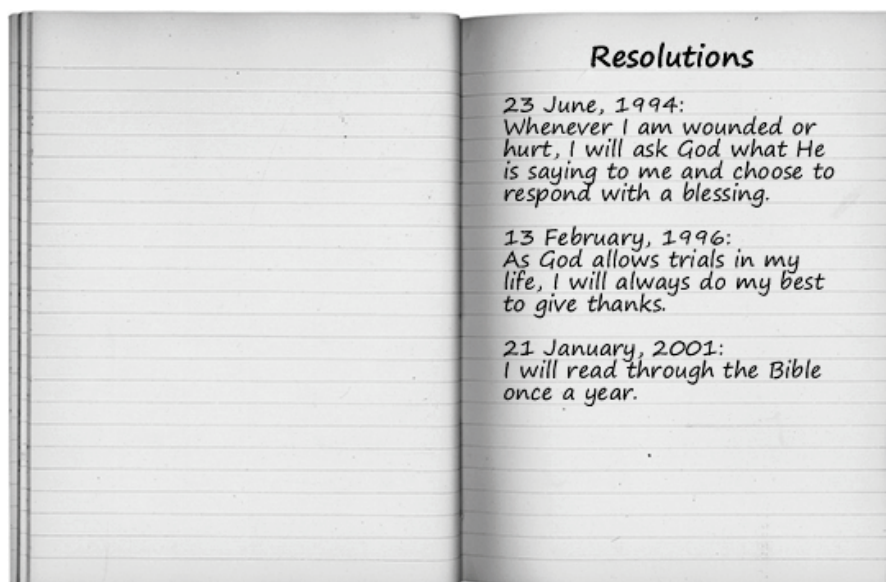 Resolutions
23 June, 1994:
Whenever I am wounded or
hurt, I will ask God what He
is saying to me and choose to
respond with a blessing.
13 February, 1996:
As God allows trials in my
life, I will always do my best
to give thanks.
21 January, 2001:
I will read through the Bible
once a year.